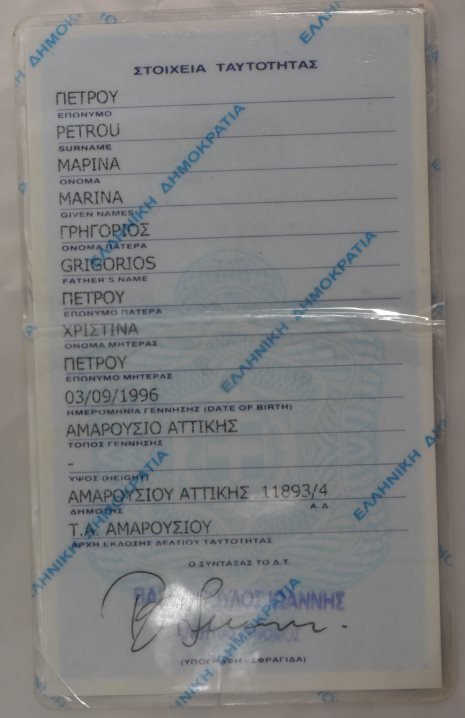 ΣΤΟΙΧΕΙΑ ΤΑΥΤΟΤΗΤΑΣ
ΠΕΤΡΟΥ
ΕΠΩΝΥΜΟ
PETROU
SURNAME
ΜΑΡΙΝΑ
ΟΝΟΜΑ
MARINA
GIVEN NAMES
ΓΡΗΓΟΡΙΟΣ
ΟΝΟΜΑ ΠΑΤΕΡΑ
GRIGORIOS
FATHER'S NAME
ΠΕΤΡΟΥ
ΕΠΩΝΥΜΟ ΠΑΤΕΡΑ
ΧΡΙΣΤΙΝΑ
ΟΝΟΜΑ ΜΗΤΕΡΑΣ
ΠΕΤΡΟΥ
ΕΠΩΝΥΜΟ ΜΗΤΕΡΑΣ
03/09/1996
ΗΜΕΡΟΜΗΝΙΑ ΓΕΝΝΗΣΗΣ (DATE OF BIRTH)
ΑΜΑΡΟΥΣΙΟ ΑΤΤΙΚΗΣ
ΤΟΠΟΣ ΓΕΝΝΗΣΗΣ
-
ΥΨΟΣ (HEIGHT)
ΑΜΑΡΟΥΣΙΟΥ ΑΤΤΙΚΗΣ 11893/4
ΔΗΜΟΤΗΣ Α.Δ.
Τ.Α. ΑΜΑΡΟΥΣΙΟΥ
ΑΡΧΗ ΕΚΔΟΣΗΣ ΔΕΛΤΙΟΥ ΤΑΥΤΟΤΗΤΑΣ
Ο ΣΥΝΤΑΞΑΣ ΤΟ Δ.Τ.
ΙΩΑΝΝΗΣ
(ΥΠΟΓΡΑΦΗ - ΣΦΡΑΓΙΔΑ)
ΕΛΛΗΝΙΚΗ ΔΗΜΟΚΡΑΤΙΑ
ΕΛΛΗΝΙΚΗ ΔΗΜΟΚΡΑΤΙΑ
ΕΛΛΗΝΙΚΗ ΔΗΜΟΚΡΑΤΙΑ
ΕΛΛΗΝΙΚΗ ΔΗΜΟΚΡΑΤΙΑ